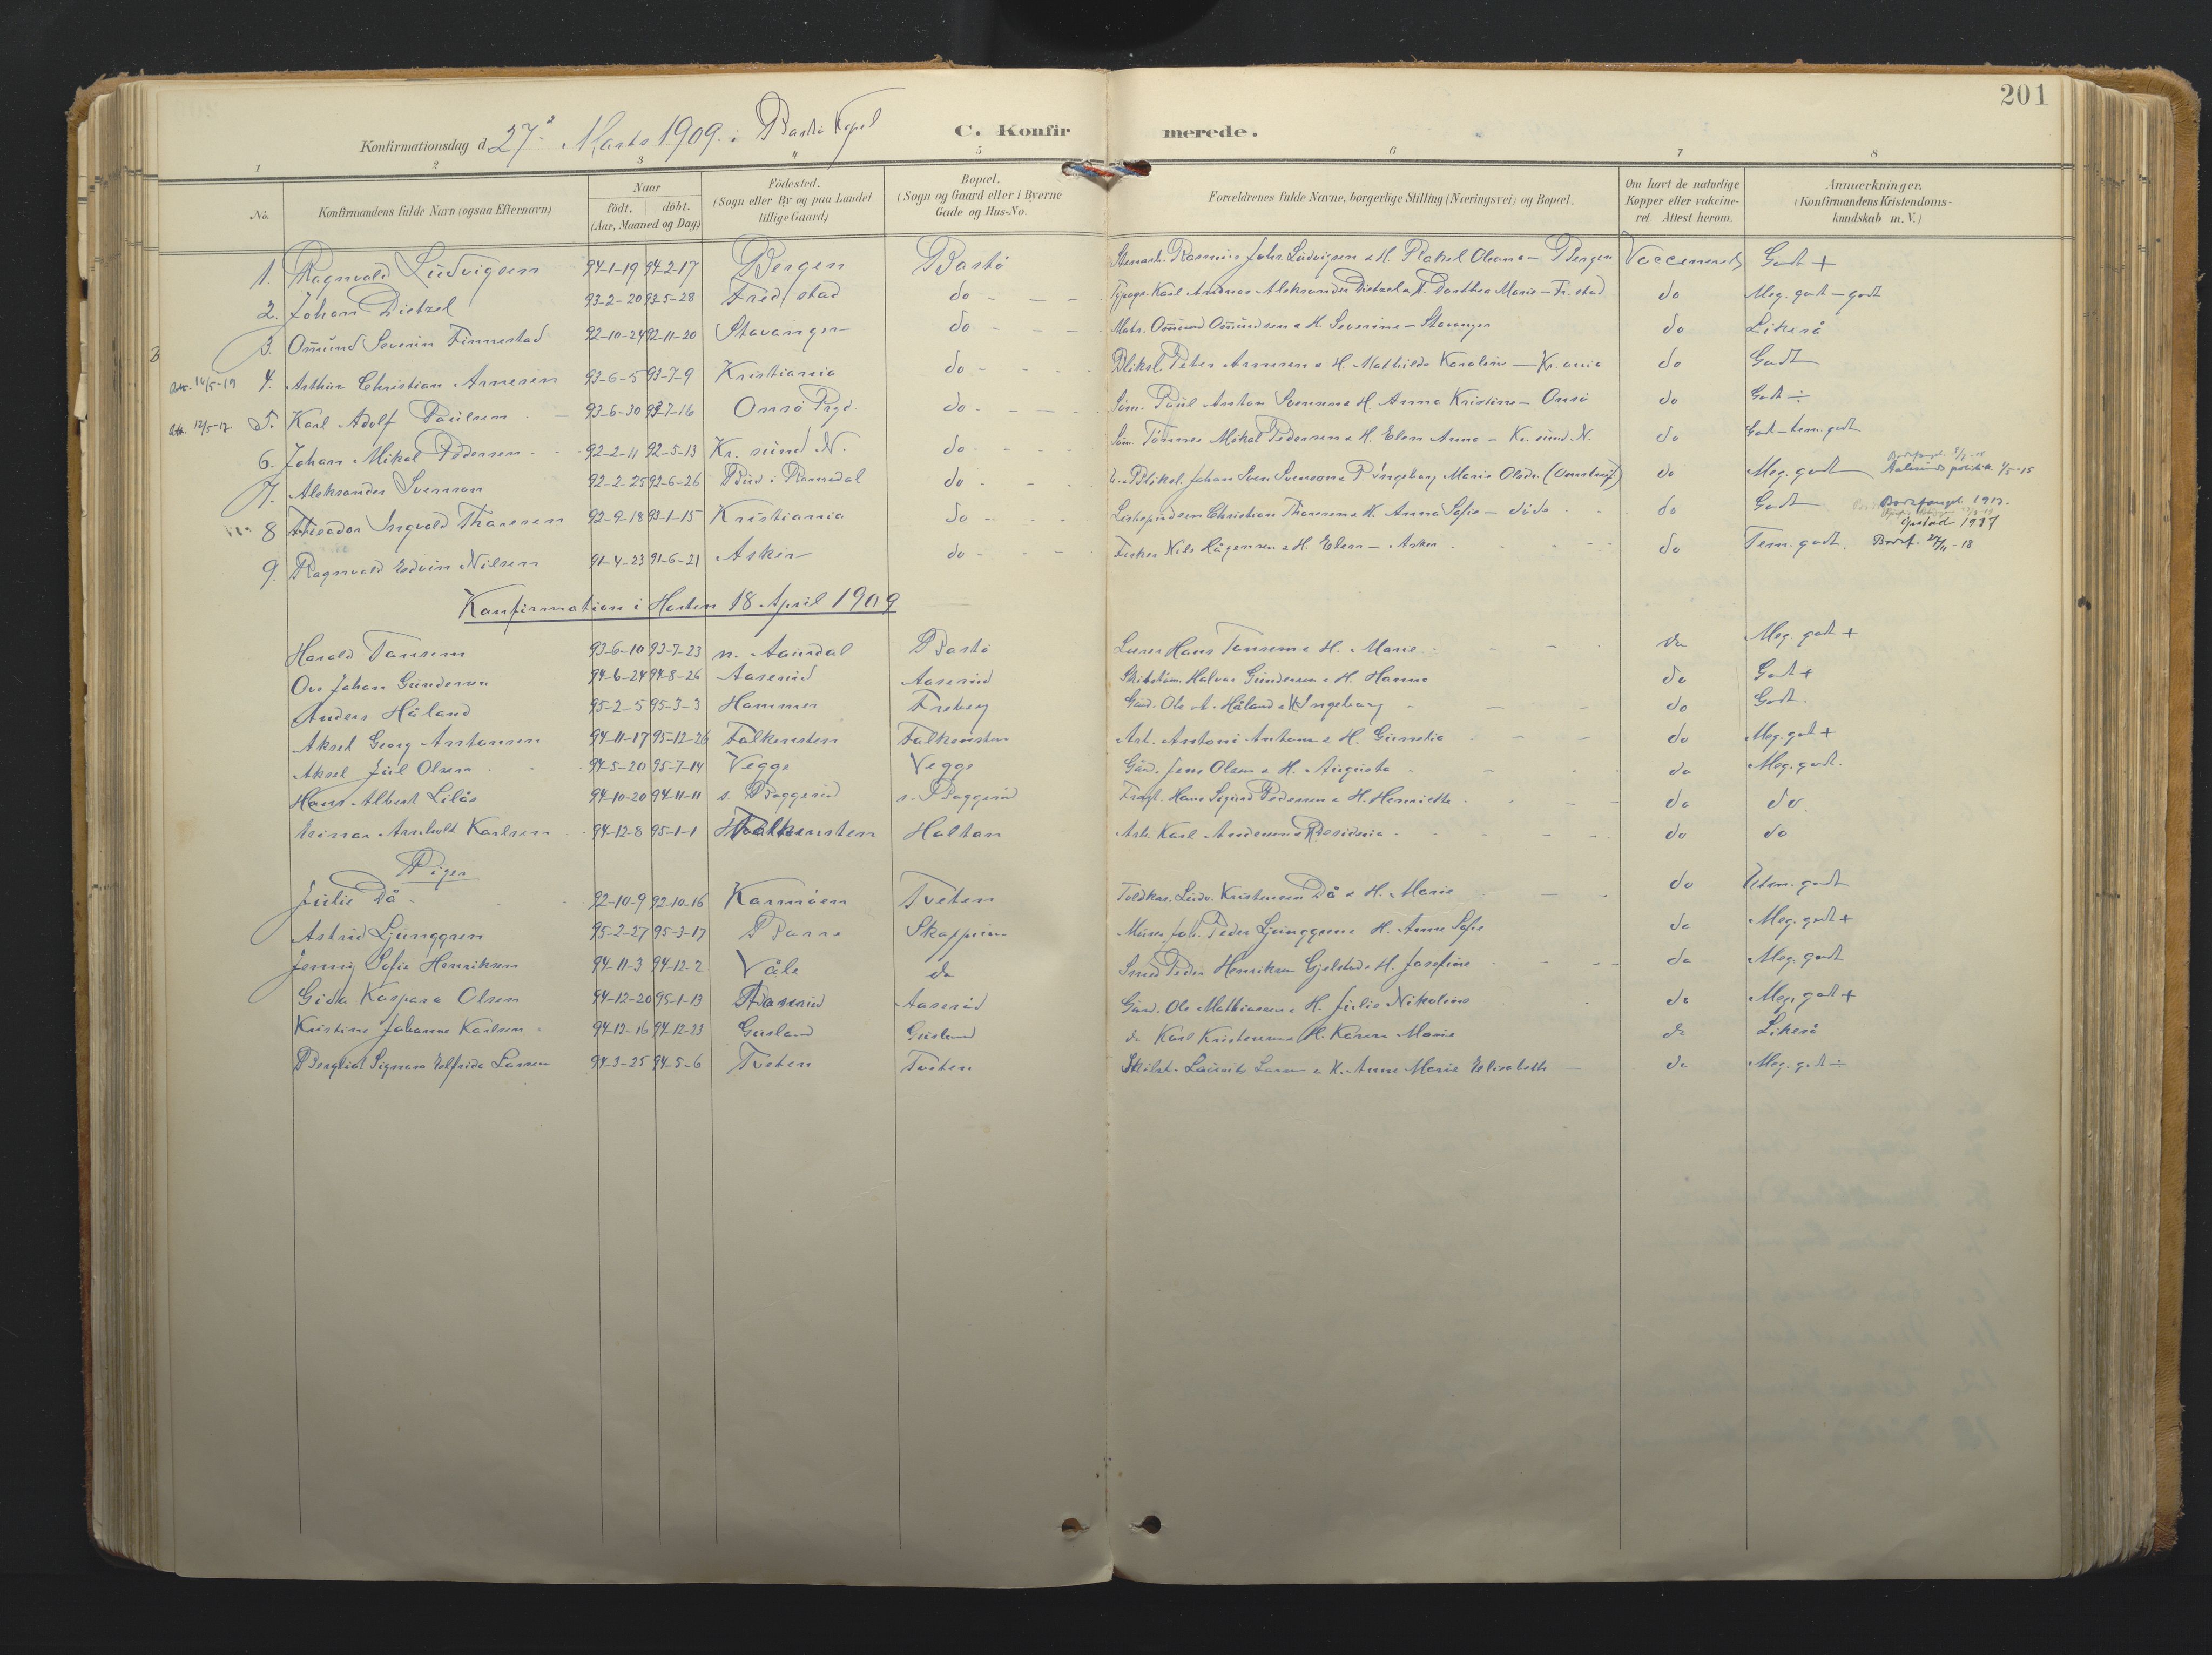 201
Konfirmationsdag d. 27. Marts 1909. i Bastö Kapel
C. Konfirmerede.
1 2 3 4 5 6 7 8
No. Konfirmandens fulde Navn (ogsaa Efternavn) Naar födt. döbt. (Aar, Maaned og Dag) Födested. (Sogn eller By og paa Landet tillige Gaard) Bopæl. (Sogn og Gaard eller i Byerne Gade og Hus-No. Forældrenes fulde Navne, borgerlige Stilling (Næringsvei) og Bopæl. Om havt de naturlige Kopper eller vakcineret. Attest herom. Anmærkninger. (Konfirmandens Kristendomskundskab m. V.)
1. Ragnvald Ludvigsen 94-1-19 94-2-17 Bergen Bastö Rasmus Johs. Ludvigsen & H. Rakel Oleana - Bergen Godt +
2. Johan Dietzel 93-2-20 93-5-28 Fred.stad do Typogr. Karl Andreas Aleksander Dietzel & H. Dorthea Marie - Fr.stad do Meg. godt - godt
3. Omund Severin Finnestad 92-10-24 92-11-20 Stavanger do Matr. Omund Omundsen & H. Severine - Stavanger do Likeså
Att. 14/5-19 4. Arthur Christian Arnesen 93-6-5 93-7-9 Kristiania do Bliksl. Peter Arnesen & H. Mathilde Karoline - Kr.ania do Godt
Att. 12/5-17 5. Karl Adolf Paulsen 93-6-30 93-7-16 Onsö Prgd. do Söm. Paul Anton Svensen & H. Anna Kristine - Onsö do Godt ÷
6. Johan Mikal Pedersen 92-2-11 92-5-13 Kr.sund N. do Söm. Tönnes Mikal Pedersen & H. Elen Anna - Kr.sund. N. do God - tem. godt
7. Aleksander Svenson 92-2-25 92-6-26 Bud i Romsdal do Bliksl. Johan Sven Svenson & P. Ingeborg Marie Olsdr. do Meg. godt Aalesunds politik. 4/5-15
8 Theodor Ingvald Thoresen 92-9-18 93-1-15 Kristiania do Christian Thoresen & H. Anna Sofie - döde do Godt Bortfanget. 1913.
1937
9. Ragnvald Edvin Nilsen 91-4-23 91-6-21 Asker do Fisker Nils Hågensen & H. Elen - Asker do Tem. godt. Bortf. 27/11-13
Konfirmation i Horten 18 April 1909
Harald Tansem 93-6-10 93-7-23 n. Aaindal Bastö Lærer Hans Tansem & H. Marie do Meg. godt +
Ove Johan Gundersen 94-6-24 94-8-26 Aaserud Aaserud Skibstöm. Halvor Gundersen & H. Hanna do Godt +
Anders Håland 95-2-5 95-3-3 Hammer Freberg Gård. Ole A. Håland & H. Ingeborg do Godt.
Aksel Georg Antonsen 94-11-17 95-12-26 Falkensten Falkensten Arb. Antoni Antonsen & H. Gunelia do Meg. godt +
Aksel Juul Olsen 94-5-20 95-7-14 Vegge Vegge Gård. Jens Olsen & H. Augusta do Meg. godt.
Hans Albert Lilås 94-10-20 94-11-11 s. Baggerud s. Baggerud Hans Sigurd Pedersen & H. Henriette do do.
Einar Arnholt Karlsen 94-12-8 95-1-1 Falkensten Holtan Arb. Karl Andersen & do do
Piger
Julie Då 92-10-9 92-10-16 Karmöen Tveten Toldkas. Ludv. Kristensen Då & H. Marie do Udm. godt
Astrid Ljunggren 95-2-27 95-3-17 Borre Skoppum Murer Joh. Peder Ljunggren & H. Anne Sofie do Meg. godt +
Jenny Sofie Henriksen 94-11-3 94-12-2 Våle do Smed Peder Henriksen Gjelstad & H. Josefine do Meg. godt
Gida Kaspara Olsen 94-12-20 95-1-13 Aaserud Aaserud Gård. Ole Mathiassen & H. Julie Nikoline do Meg. godt +
Kristine Johanne Karlsen 94-12-16 94-12-23 Gusland Gusland do Karl Kristensen & H. Karen Marie do Likeså
Bergliot Signora Elfrida Larsen 94-3-25 94-5-6 Tveten Tveten Laurits Larsen & H. Anne Marie Elisabeth do Meg. godt ÷